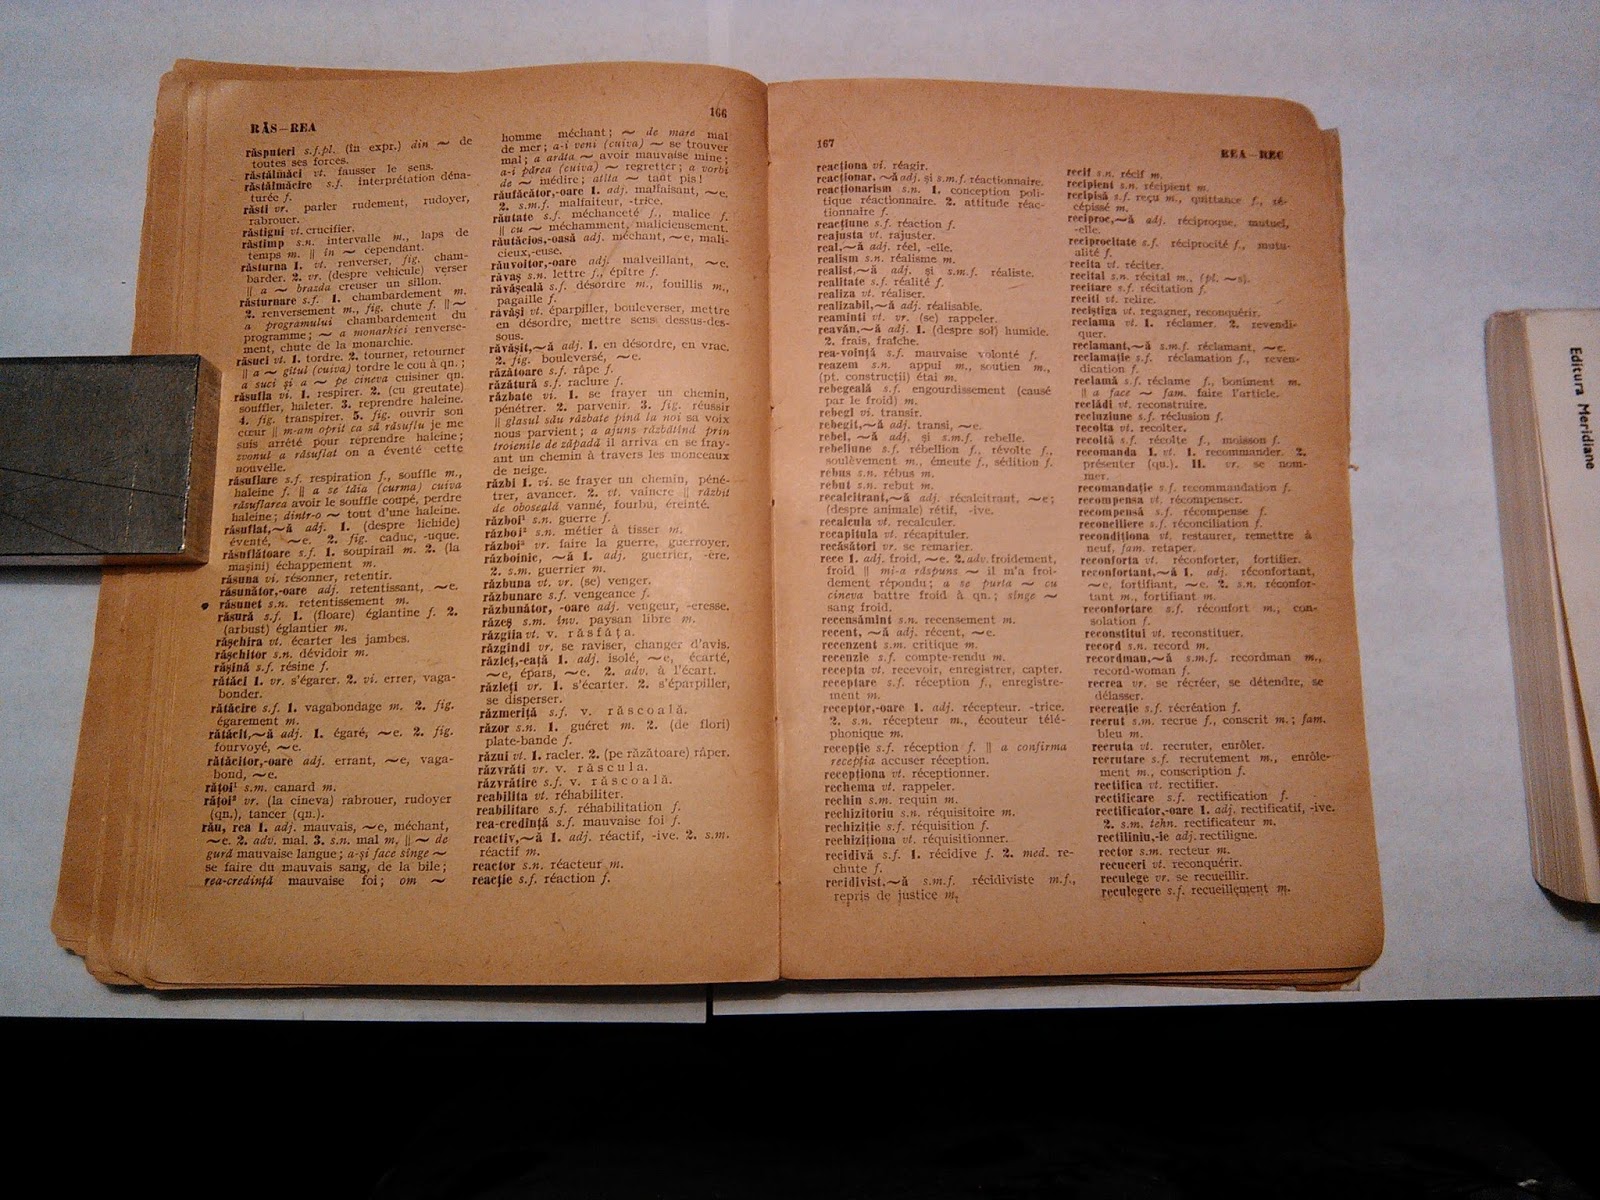 166
RĂS—REA
răsputeri s.f.pl. (în expr.) din ~ de
toutes ses forces.
răstălmăci vt. fausser le sens.
răstălmăcire s.f. interprétation déna-
turée f.
răsti vr. parler rudement, rudoyer,
rabrouer.
răstigni vt. crucifier.
răstimp s.n. intervalle m., laps de
temps m. || în ~ cependant.
răsturna 1. vt. renverser, fig. cham-
barder. 2. vr. (despre vehicule) verser
|| a ~ brazda creuser un sillon.
răsturnare s.f. 1. chambardement m.
2. renversement m., fig. chute f. || ~
a programului chambardement du
programme; ~ a monarhiei renverse-
ment, chute de la monarchie.
răsuci vt. 1. tordre. 2. tourner, retourner
|| a ~ gîtul (cuiva) tordre le cou à qn.;
a suci și a ~ pe cineva cuisiner qn.
răsufla vi. 1. respirer. 2. (cu greutate)
souffler, haleter. 3. reprendre haleine.
4. fig. transpirer. 5. fig. ouvrir son
cœur || m-am oprit ca să răsuflu je me
suis arrêté pour reprendre haleine;
zvonul a răsuflat on a éventé cette
nouvelle.
răsuflare s.f. respiration f., souffle m.,
haleine f. || a se tăia (curma) cuiva
răsuflarea avoir le souffle coupé, perdre
haleine; dintr-o ~ tout d'une haleine.
răsuflat,~ă adj. 1. (despre lichide)
éventé, ~e. 2. fig. caduc, -uque.
răsuflătoare s.f. 1. soupirail m. 2. (la
mașini) échappement m.
răsuna vi. résonner, retentir.
răsunător,-oare adj. retentissant, ~e.
răsunet s.n. retentissement m.
răsură s.f. 1. (floare) églantine f. 2.
(arbust) églantier m.
rășchira vt. écarter les jambes.
rășchitor s.n. dévidoir m.
rășină s.f. résine f.
rătăci 1. vr. s'égarer. 2. vi. errer, vaga-
bonder.
rătăcire s.f. 1. vagabondage m. 2. fig.
égarement m.
rătăcit,~ă adj. 1. égaré, ~e. 2. fig.
fourvoyé, ~e.
rătăcitor,-oare adj. errant, ~e, vaga-
bond, ~e.
rățoi¹ s.m. canard m.
rățoi² vr. (la cineva) rabrouer, rudoyer
(qn.), tancer (qn.).
rău, rea 1. adj. mauvais, ~e, méchant,
~e. 2. adv. mal. 3. s.n. mal m. || ~ de
gură mauvaise langue; a-și face sînge ~
se faire du mauvais sang, de la bile;
rea-credință mauvaise foi; om ~
homme méchant; ~ de mare mal
de mer; a-i veni (cuiva) ~ se trouver
mal; a arăta ~ avoir mauvaise mine;
a-i părea (cuiva) ~ regretter; a vorbi
de ~ médire; atîta ~ tant pis!
răufăcător,-oare 1. adj. malfaisant, ~e.
2. s.m.f. malfaiteur, -trice.
răutate s.f. méchanceté f., malice f.
|| cu ~ méchamment, malicieusement.
răutăcios,-oasă adj. méchant, ~e, mali-
cieux,-euse.
răuvoitor,-oare adj. malveillant, ~e.
răvaș s.n. lettre f., épître f.
răvășeală s.f. désordre m., fouillis m.,
pagaille f.
răvăși vt. éparpiller, bouleverser, mettre
en désordre, mettre sens dessus-des-
sous.
răvășit,~ă adj. 1. en désordre, en vrac.
2. fig. bouleversé, ~e.
răzătoare s.f. râpe f.
răzătură s.f. raclure f.
răzbate vi. 1. se frayer un chemin,
pénétrer. 2. parvenir. 3. fig. réussir
|| glasul său răzbate pînă la noi sa voix
nous parvient; a ajuns răzbătînd prin
troienile de zăpadă il arriva en se fray-
ant un chemin à travers les monceaux
de neige.
răzbi 1. vi. se frayer un chemin, péné-
trer, avancer. 2. vt. vaincre || răzbit
de oboseală vanné, fourbu, éreinté.
război¹ s.n. guerre f.
război² s.n. métier à tisser m.
război³ vr. faire la guerre, guerroyer.
războinic, ~ă 1. adj. guerrier, -ère.
2. s.m. guerrier m.
răzbuna vt. vr. (se) venger.
răzbunare s.f. vengeance f.
răzbunător, -oare adj. vengeur, -eresse.
răzeș s.m. inv. paysan libre m.
răzgîia vt. v. răsfăța.
răzgîndi vr. se raviser, changer d'avis.
răzleț,-eață 1. adj. isolé, ~e, écarté,
~e, épars, ~e. 2. adv. à l'écart.
răzleți vr. 1. s'écarter. 2. s'éparpiller,
se disperser.
răzmeriță s.f. v. răscoală.
răzor s.n. 1. guéret m. 2. (de flori)
plate-bande f.
răzui vt. 1. racler. 2. (pe răzătoare) râper.
răzvrăti vr. v. răscula.
răzvrătire s.f. v. răscoală.
reabilita vt. réhabiliter.
reabilitare s.f. réhabilitation f.
rea-credință s.f. mauvaise foi f.
reactiv,~ă 1. adj. réactif, -ive. 2. s.m.
réactif m.
reactor s.n. réacteur m.
reacție s.f. réaction f.
167
REA—REC
reacționa vi. réagir.
reacționar, ~ă adj. și s.m.f. réactionnaire.
reacționarism s.n. 1. conception poli-
tique réactionnaire. 2. attitude réac-
tionnaire f.
reacțiune s.f. réaction f.
reajusta vt. rajuster.
real,~ă adj. réel, -elle.
realism s.n. réalisme m.
realist,~ă adj. și s.m.f. réaliste.
realitate s.f. réalité f.
realiza vt. réaliser.
realizabil,~ă adj. réalisable.
reaminti vt. vr. (se) rappeler.
reavăn,~ă adj. 1. (despre sol) humide.
2. frais, fraîche.
rea-voință s.f. mauvaise volonté f.
reazem s.n. appui m., soutien m.,
(pt. construcții) étai m.
rebegeală s.f. engourdissement (causé
par le froid) m.
rebegi vi. transir.
rebegit,~ă adj. transi, ~e.
rebel, ~ă adj. și s.m.f. rebelle.
rebeliune s.f. rébellion f., révolte f.,
soulèvement m., émeute f., sédition f.
rebus s.n. rébus m.
rebut s.n. rebut m.
recalcitrant,~ă adj. récalcitrant, ~e;
(despre animale) rétif, -ive.
recalcula vt. recalculer.
recapitula vt. récapituler.
recăsători vr. se remarier.
rece 1. adj. froid, ~e. 2. adv. froidement,
froid || mi-a răspuns ~ il m'a froi-
dement répondu; a se purta ~ cu
cineva battre froid à qn.; sînge ~
sang froid.
recensămînt s.n. recensement m.
recent, ~ă adj. récent, ~e.
recenzent s.m. critique m.
recenzie s.f. compte-rendu m.
recepta vt. recevoir, enregistrer, capter.
receptare s.f. réception f., enregistre-
ment m.
receptor,-oare 1. adj. récepteur. -trice.
2. s.n. récepteur m., écouteur télé-
phonique m.
recepție s.f. réception f. || a confirma
recepția accuser réception.
recepționa vt. réceptionner.
rechema vt. rappeler.
rechin s.m. requin m.
rechizitoriu s.n. réquisitoire m.
rechiziție s.f. réquisition f.
rechiziționa vt. réquisitionner.
recidivă s.f. 1. récidive f. 2. med. re-
chute f.
recidivist,~ă s.m.f. récidiviste m.f.,
repris de justice m.
recif s.n. récif m.
recipient s.n. récipient m.
recipisă s.f. reçu m., quittance f., ré-
cépissé m.
reciproc,~ă adj. réciproque, mutuel,
-elle.
reciprocitate s.f. réciprocité f., mutu-
alité f.
recita vt. réciter.
recital s.n. récital m., (pl. ~s).
recitare s.f. récitation f.
reciti vt. relire.
recîștiga vt. regagner, reconquérir.
reclama vt. 1. réclamer. 2. revendi-
quer.
reclamant,~ă s.m.f. réclamant, ~e.
reclamație s.f. réclamation f., reven-
dication f.
reclamă s.f. réclame f., boniment m.
|| a face ~ fam. faire l'article.
reclădi vt. reconstruire.
recluziune s.f. réclusion f.
recolta vt. récolter.
recoltă s.f. récolte f., moisson f.
recomanda 1. vt. 1. recommander. 2.
présenter (qn.). II. vr. se nom-
mer.
recomandație s.f. recommandation f.
recompensa vt. récompenser.
recompensă s.f. récompense f.
reconciliere s.f. réconciliation f.
recondiționa vt. restaurer, remettre à
neuf, fam. retaper.
reconforta vt. réconforter, fortifier.
reconfortant,~ă 1. adj. réconfortant,
~e, fortifiant, ~e. 2. s.n. réconfor-
tant m., fortifiant m.
reconfortare s.f. réconfort m., con-
solation f.
reconstitui vt. reconstituer.
record s.n. record m.
recordman,~ă s.m.f. recordman m.,
record-woman f.
recrea vr. se récréer, se détendre, se
délasser.
recreație s.f. récréation f.
recrut s.m. recrue f., conscrit m.; fam.
bleu m.
recruta vt. recruter, enrôler.
recrutare s.f. recrutement m., enrôle-
ment m., conscription f.
rectifica vt. rectifier.
rectificare s.f. rectification f.
rectificator,-oare 1. adj. rectificatif, -ive.
2. s.m. tehn. rectificateur m.
rectiliniu,-ie adj. rectiligne.
rector s.m. recteur m.
recuceri vt. reconquérir.
reculege vr. se recueillir.
reculegere s.f. recueillement m.
Editura Meridiane